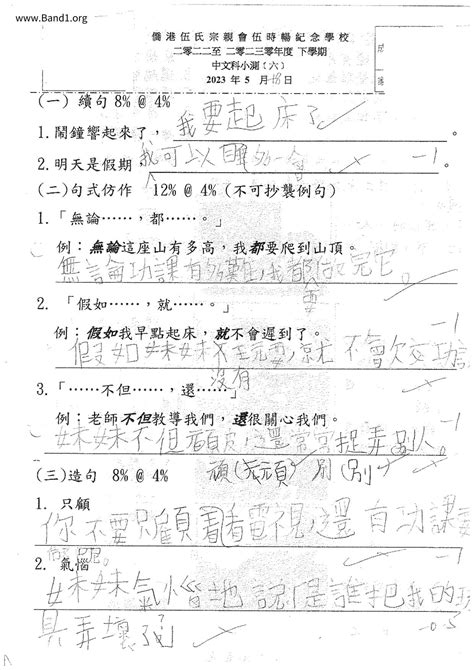 www.Band1.org
僑港伍氏宗親會伍時暢紀念學校
二零二二至 二零二三年度 下學期
中文科小測（六）
2023 年 5 月 18 日
(一) 續句 8% @ 4%
1. 鬧鐘響起來了，我要起床了。
2. 明天是假期，我可以睡多一會。
-1
(二) 句式仿作 12% @ 4% (不可抄襲例句)
1.「無論……，都……。」
例：無論這座山有多高，我都要爬到山頂。
無論功課有多難，我都要做完它。
2.「假如……，就……。」
例：假如我早點起床，就不會遲到了。
-1
假如妹妹不玩耍，就不會欠交功課
沒有
3.「……不但……，還……」
例：老師不但教導我們，還很關心我們。
-1
妹妹不但頑皮，還常常捉弄別人。
(三) 造句 8% @ 4%
頑(頑) 別(別)
1. 只顧
你不要只顧看電視，還有功課要
做呢。
-1
2. 氣惱
妹妹氣惱地說：是誰把我的玩
具弄壞了
-0.5